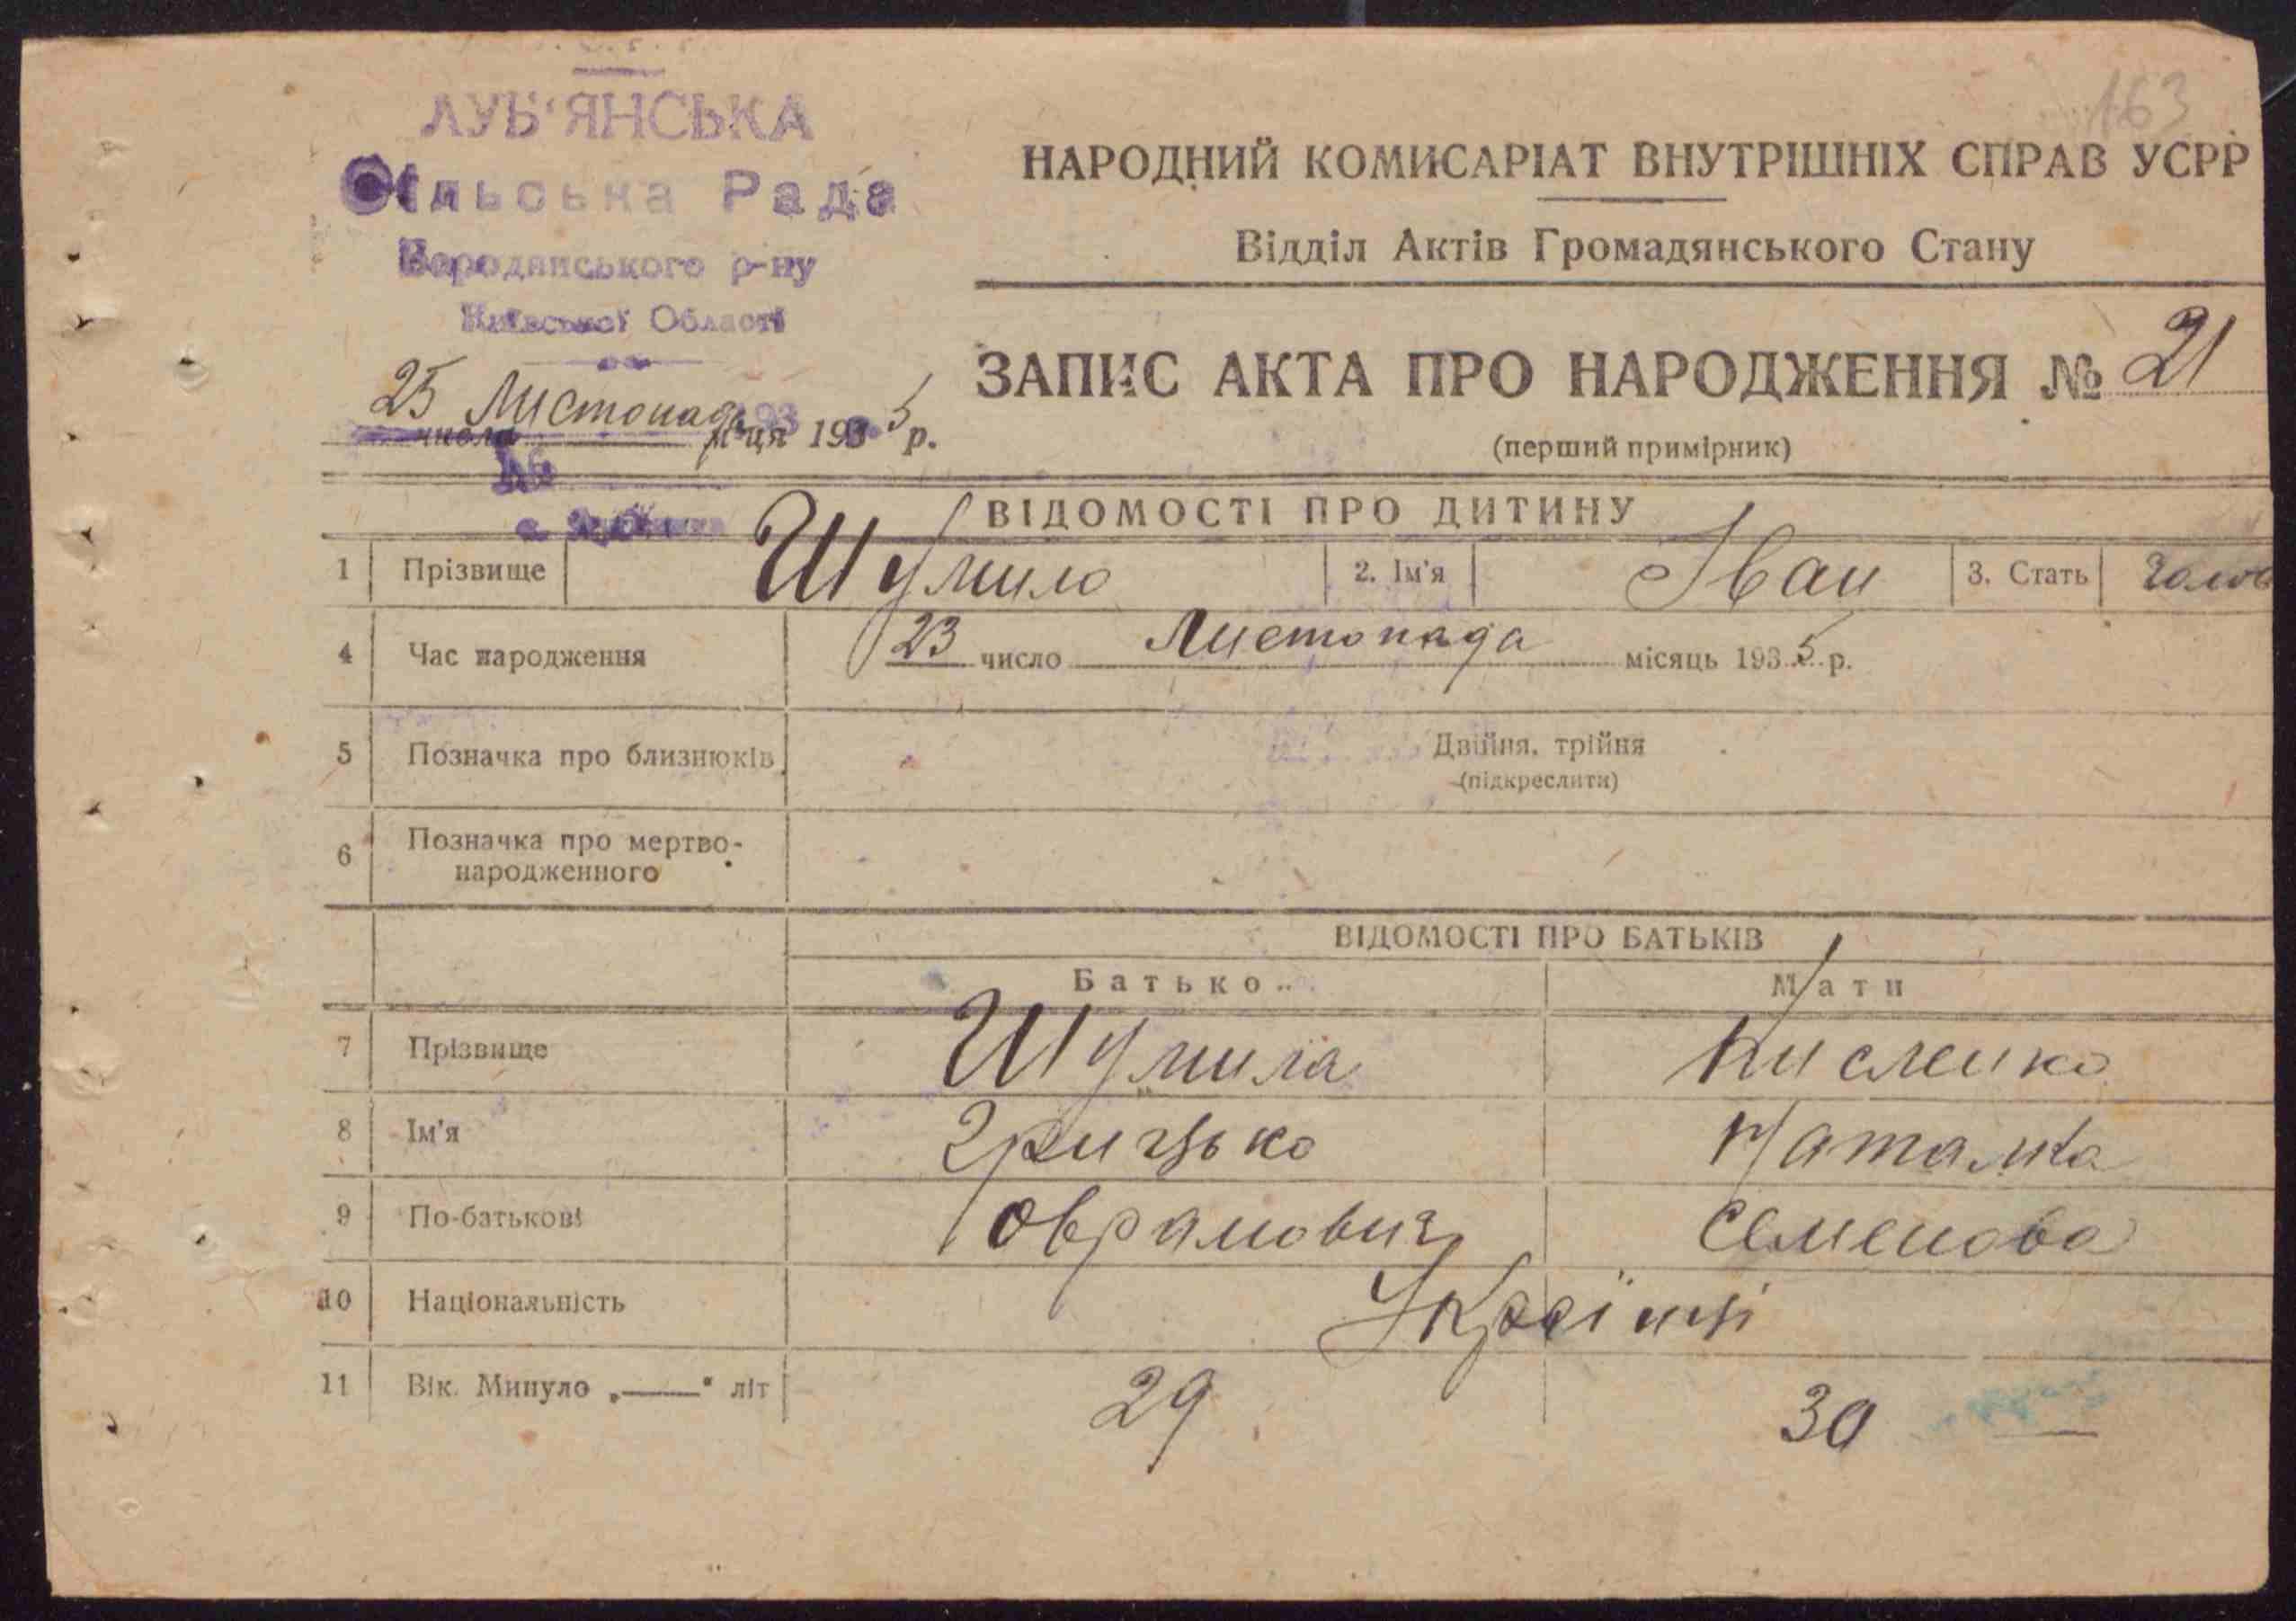 163
ЛУБ'ЯНСЬКА
Сільська Рада
Бородянського р-ну
Київської Області
НАРОДНИЙ КОМИСАРІАТ ВНУТРІШНІХ СПРАВ УСРР
Відділ Актів Громадянського Стану
ЗАПИС АКТА ПРО НАРОДЖЕННЯ № 21
(перший примірник)
25 Листопада м-ця 1935 р.
числа
№
ВІДОМОСТІ ПРО ДИТИНУ
1 Прізвище Шумило 2. Ім'я Іван 3. Стать Чолов
4 Час народження 23 число Листопада місяць 1935 р.
5 Позначка про близнюків Двійня, трійня
(підкреслити)
6 Позначка про мертво-
народженного
ВІДОМОСТІ ПРО БАТЬКІВ
Батько Мати
7 Прізвище Шумила Кисленко
8 Ім'я Грицько Наталка
9 По-батькові Оврамович Семенова
10 Національність Українці
11 Вік. Минуло „——" літ 29 30